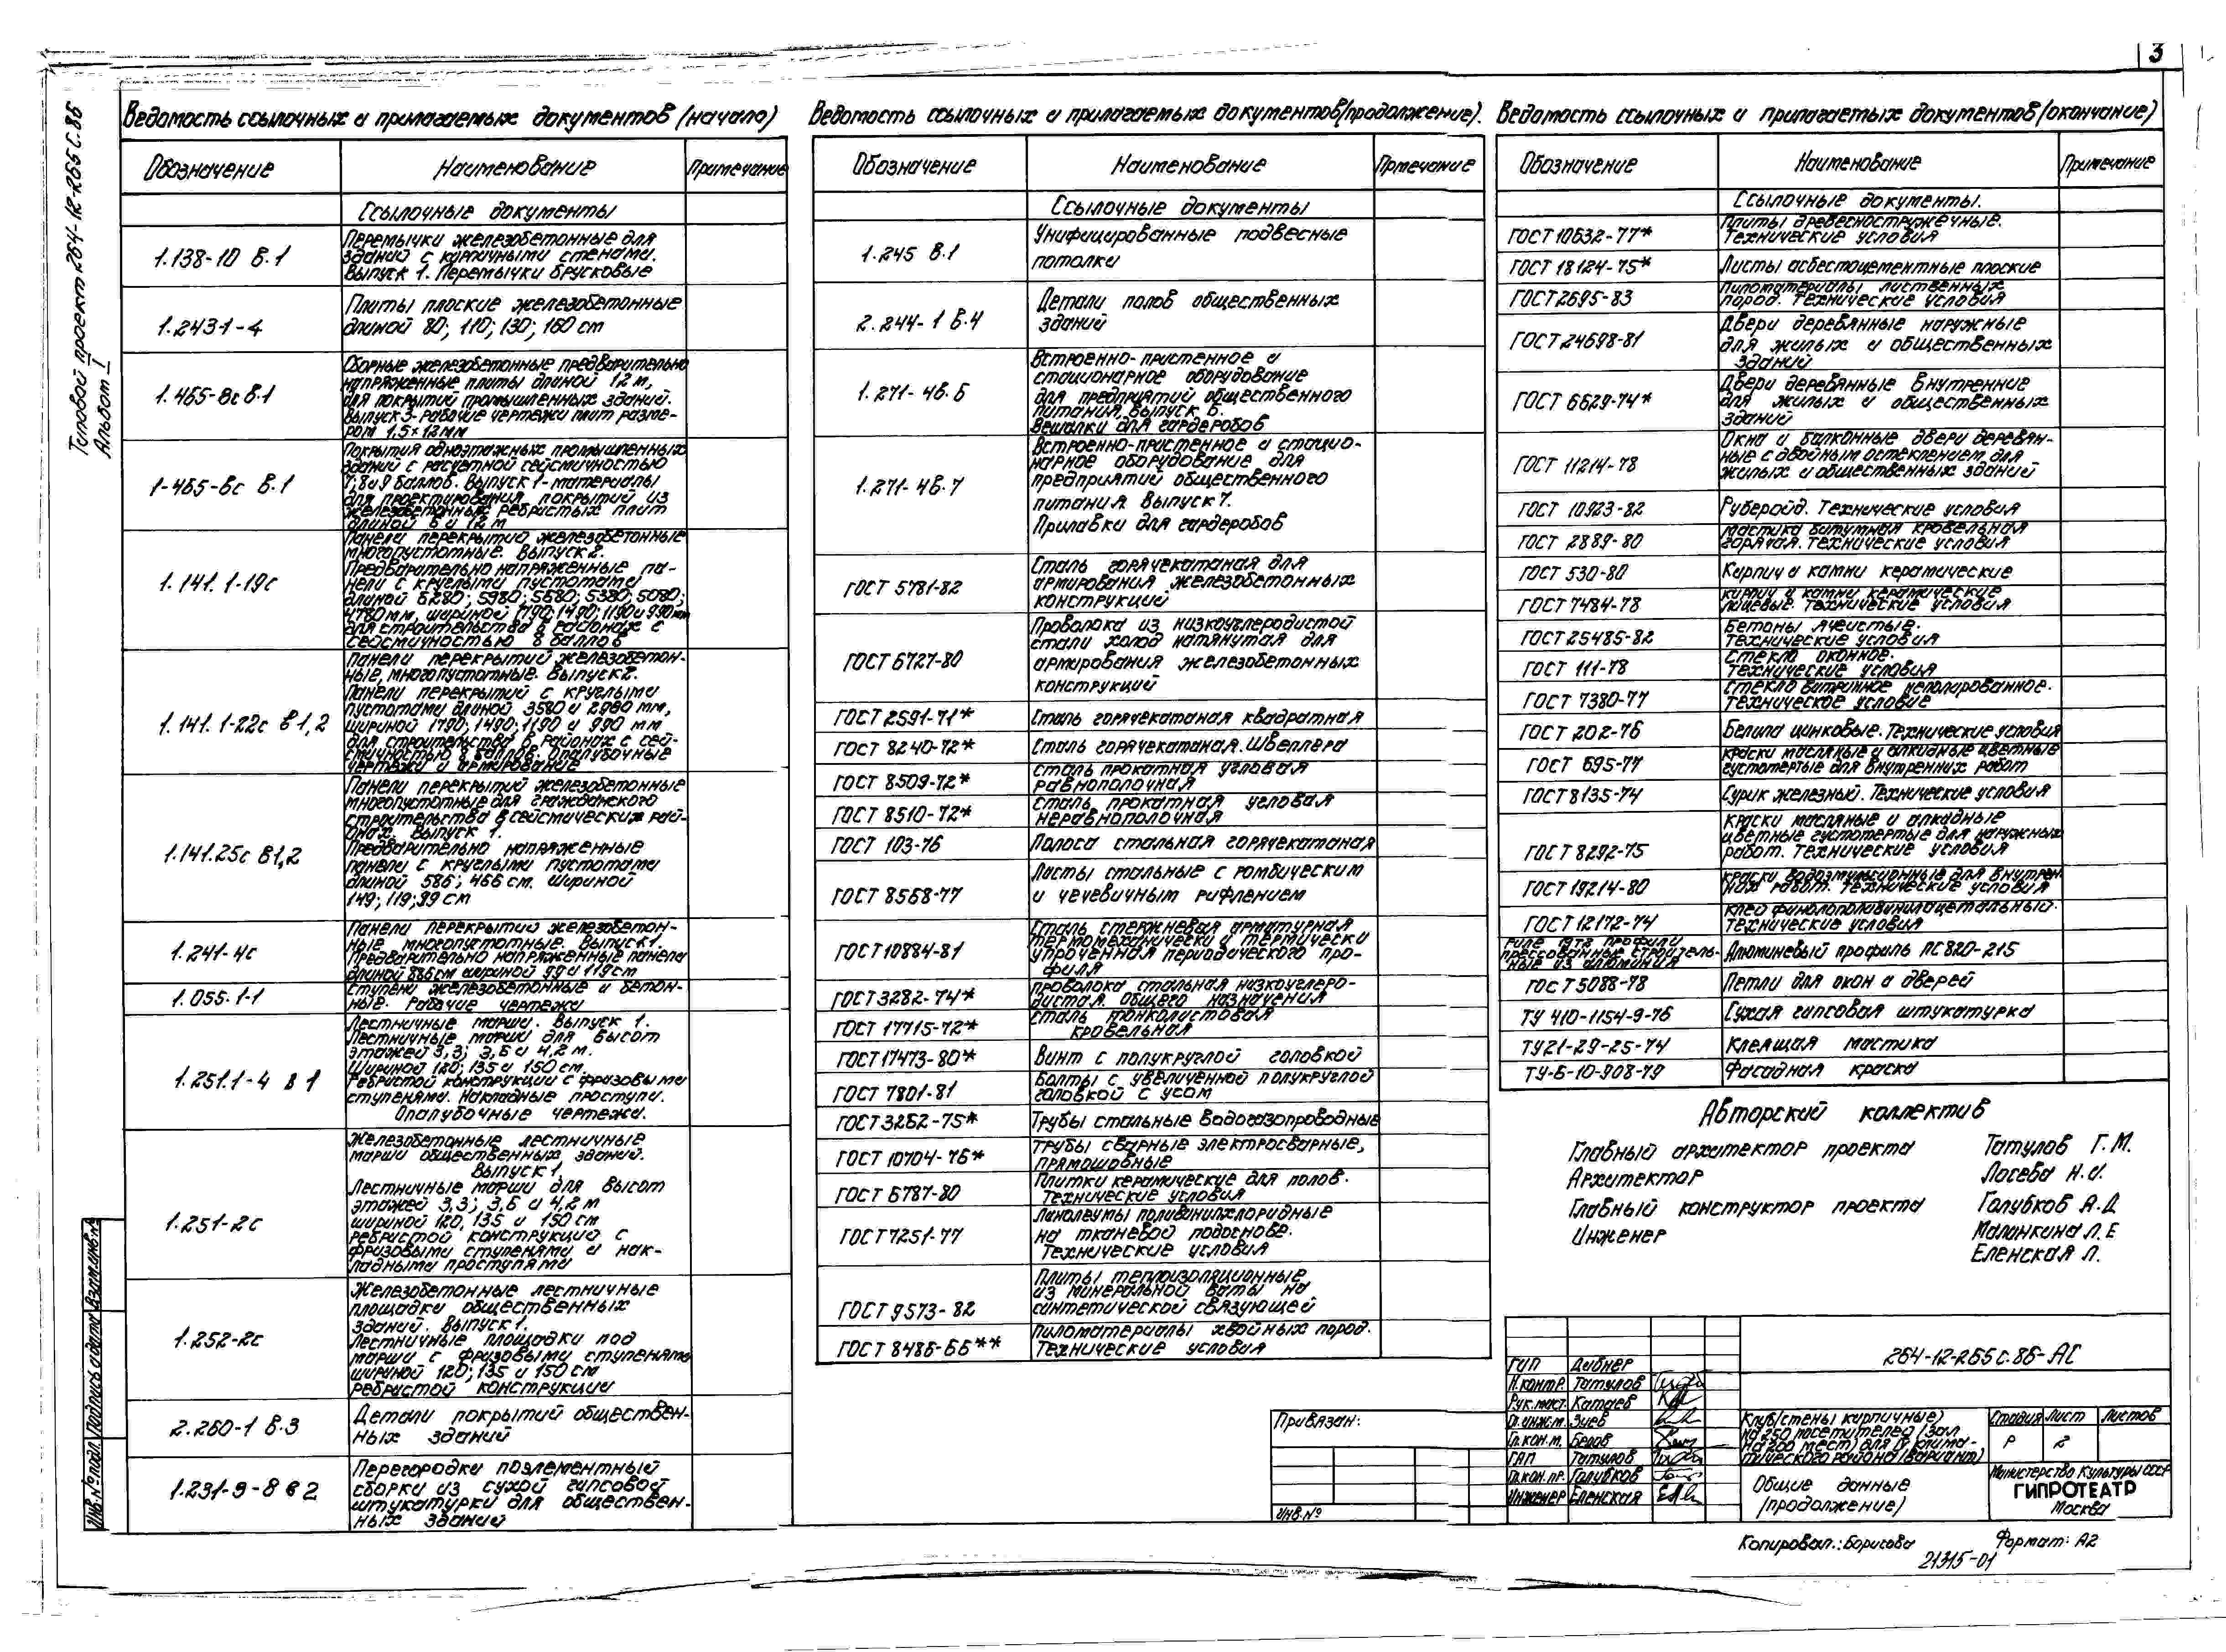 3
Типовой проект 264-12-265с.86
Альбом I
Ведомость ссылочных и прилагаемых документов (начало)
Обозначение Наименование Примечание
Ссылочные документы
1.138-10 в.1
Перемычки железобетонные для
зданий с кирпичными стенами.
Выпуск 1. Перемычки брусковые
1.243.1-4
Плиты плоские железобетонные
длиной 80; 110; 130; 160 cm
1.465-8с в.1
Сборные железобетонные предварительно
напряженные плиты длиной 12 м,
для покрытий промышленных зданий.
Выпуск 3. Рабочие чертежи плит разме-
ром 1,5×12мм
1-465-6с в.1
Покрытия одноэтажных промышленных
зданий с расчетной сейсмичностью
7,8 и 9 баллов. Выпуск 1-материалы
для проектирования покрытий из
железобетонных ребристых плит
длиной 6 и 12 м
1.141.1-19с
Панели перекрытий железобетонные
многопустотные. Выпуск 2.
Предварительно напряженные па-
нели с круглыми пустотами
длиной 6280; 5980; 5680; 5380; 5080;
4780мм, шириной 1790; 1490; 1190 и 990 мм
для строительства в районах с
сейсмичностью 8 баллов
1.141.1-22с в1,2
Панели перекрытий железобетон-
ные, многопустотные. Выпуск 2.
Панели перекрытий с круглыми
пустотами длиной 3580 и 2980 мм,
шириной 1790; 1490; 1190 и 990 мм
для строительства в районах с сей-
смичностью 8 баллов. Опалубочные
чертежи и армирование
1.141.25с в1,2
Панели перекрытий железобетонные
многопустотные для гражданского
строительства в сейсмических рай-
онах. Выпуск 1.
Предварительно напряженные
панели с круглыми пустотами
длиной 586; 466 см. шириной
149; 119; 99 см
1.241-4с
Панели перекрытий железобетон-
ные многопустотные. Выпуск 1.
Предварительно напряженные панели
длиной 886см шириной 99 и 119см
1.055.1-1
Ступени железобетонные и бетон-
ные. Рабочие чертежи
1.251.1-4 в 1
Лестничные марши. Выпуск 1.
Лестничные марши для высот
этажей 3,3; 3,6 и 4,2 м.
Шириной 120; 135 и 150 см.
Ребристой конструкции с фризовыми
ступенями. Накладные проступи.
Опалубочные чертежи.
1.251-2с
Железобетонные лестничные
марши общественных зданий.
Выпуск 1.
Лестничные марши для высот
этажей 3,3; 3,6 и 4,2 м
шириной 120, 135 и 150 см
ребристой конструкции с
фризовыми ступенями и нак-
ладными проступями
1.252-2с
Железобетонные лестничные
площадки общественных
зданий. Выпуск 1.
Лестничные площадки под
марши с фризовыми ступенями
шириной 120; 135 и 150 см
ребристой конструкции
2.260-1 в.3
Детали покрытий обществен-
ных зданий
1.231-9-8 в 2
Перегородки поэлементный
сборки из сухой гипсовой
штукатурки для обществен-
ных зданий
Ведомость ссылочных и прилагаемых документов (продолжение).
Обозначение Наименование Пртечание
Ссылочные документы
1.245 в.1
Унифицированные подвесные
потолки
2.244-1 в.4
Детали полов общественных
зданий
1.271-4в.6
Встроенно-пристенное и
стационарное оборудование
для предприятий общественного
питания, выпуск 6.
Вешалки для гардеробов
1.271-4в.7
Встроенно-пристенное и стацио-
нарное оборудование для
предприятий общественного
питания. Выпуск 7.
Прилавки для гардеробов
ГОСТ 5781-82
Сталь горячекатаная для
армирования железобетонных
конструкций
ГОСТ 6727-80
Проволока из низкоуглеродистой
стали холод натянутая для
армирования железобетонных
конструкций
ГОСТ 2591-71* Сталь горячекатаная квадратная
ГОСТ 8240-72* Сталь горячекатаная. Швеллера
ГОСТ 8509-72*
Сталь прокатная угловая
равнополочная
ГОСТ 8510-72*
Сталь прокатная угловая
неравнополочная
ГОСТ 103-76 Полоса стальная горячекатаная
ГОСТ 8568-77
Листы стальные с ромбическим
и чечевичным рифлением
ГОСТ 10884-81
Сталь стержневая арматурная
термомеханически и термически
упрочненная периодического про-
филя
ГОСТ 3282-74*
Проволока стальная низкоуглеро-
дистая общего назначения
ГОСТ 17715-72*
Сталь тонколистовая
кровельная
ГОСТ 17473-80* Винт с полукруглой головкой
ГОСТ 7801-81
Болты с увеличенной полукруглой
головкой с усом
ГОСТ 3262-75* Трубы стальные водогазопроводные
ГОСТ 10704-76*
Трубы сварные электросварные,
прямошовные
ГОСТ 6787-80
Плитки керамические для полов.
Технические условия
ГОСТ 7251-77
Линолеумы поливинилхлоридные
на тканевой подоснове.
Технические условия
ГОСТ 9573-82
Плиты теплоизоляционные
из минеральной ваты на
синтетической связующей
ГОСТ 8486-66**
Пиломатериалы хвойных пород.
Технические условия
Ведомость ссылочных и прилагаемых документов (окончание)
Обозначение Наименование Примечание
Ссылочные документы.
ГОСТ 10632-77*
Плиты древесностружечные.
Технические условия
ГОСТ 18124-75* Листы асбестоцементные плоские
ГОСТ 2695-83
Пиломатериалы лиственных
пород. Технические условия
ГОСТ 24698-81
Двери деревянные наружные
для жилых и общественных
зданий
ГОСТ 6629-74*
Двери деревянные внутренние
для жилых и общественных
зданий
ГОСТ 11214-78
Окна и балконные двери деревян-
ные с двойным остеклением для
жилых и общественных зданий
ГОСТ 10923-82 Рубероид. Технические условия
ГОСТ 2889-80
Мастика битумная кровельная
горячая. Технические условия
ГОСТ 530-80 Кирпич и камни керамические
ГОСТ 7484-78
Кирпич и камни керамические
лицевые. Технические условия
ГОСТ 25485-82
Бетоны ячеистые.
Технические условия
ГОСТ 111-78
Стекло оконное.
Технические условия
ГОСТ 7380-77
Стекло витринное неполированное.
Техническое условие
ГОСТ 202-76 Белила цинковые. Технические условия
ГОСТ 695-77
Краски масляные и алкидные цветные
густотертые для внутренних работ
ГОСТ 8135-74 Сурик железный. Технические условия
ГОСТ 8292-75
Краски масляные и алкидные
цветные густотертые для наружных
работ. Технические условия
ГОСТ 19214-80
Краски водоэмульсионные для внутрен-
них работ. Технические условия
ГОСТ 12172-74
Клей финолополивинилацетальный.
Технические условия
профили
прессованные строитель-
ные из алюминия
Алюминевый профиль ПС 820-215
ГОСТ 5088-78 Петли для окон и дверей
ТУ 410-1154-9-76 Сухая гипсовая штукатурка
ТУ21-29-25-74 Клеящая мастика
ТУ-6-10-908-79 Фасадная краска
Авторский коллектив
Главный архитектор проекта Татулов Г.М.
Архитектор Лосева Н.И.
Главный конструктор проекта Голубков А.Д
Инженер Маланкина Л.Е
Еленская Л.
264-12-265с.86-АС
ГИП Дибнер
Н.контр. Татулов
Рук.маст. Катаев
Гл.инж.м. Зуев
Гл.кон.м. Белов
ГАП Татулов
Гл.кон.пр. Голубков
Инженер Еленская
Клуб (стены кирпичные)
на 250 посетителей (зал
на 200 мест) для IV клима-
тического района (вариант)
Стадия Лист Листов
Р 2
Общие данные
(продолжение)
Министерство Культуры СССР
ГИПРОТЕАТР
Москва
Привязан:
Инв.№
Копировал.: Борисова Формат: А2
21315-01
Инв.№ подл. Подпись и дата Взам.инв.№